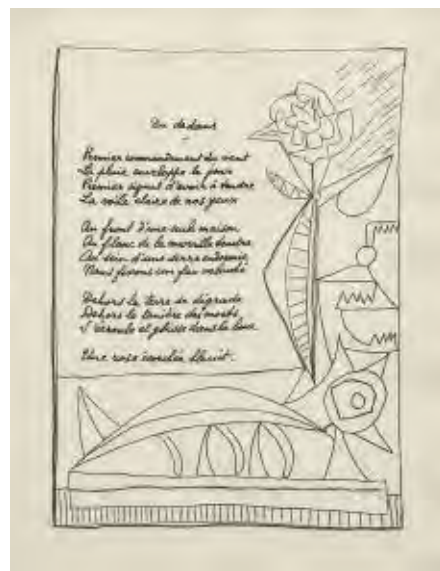 En dedans
Premier commandement du vent
La pluie enveloppe le jour
Premier signal d'avoir à tendre
La voile claire de nos yeux
Au front d'une seule maison
Au flanc de la muraille tendre
Au sein d'une serre endormie
Nous fixons un feu velouté
Dehors la terre se dégrade
Dehors la tanière des morts
S'écroule et glisse dans la boue
Une rose écorchée bleuit.